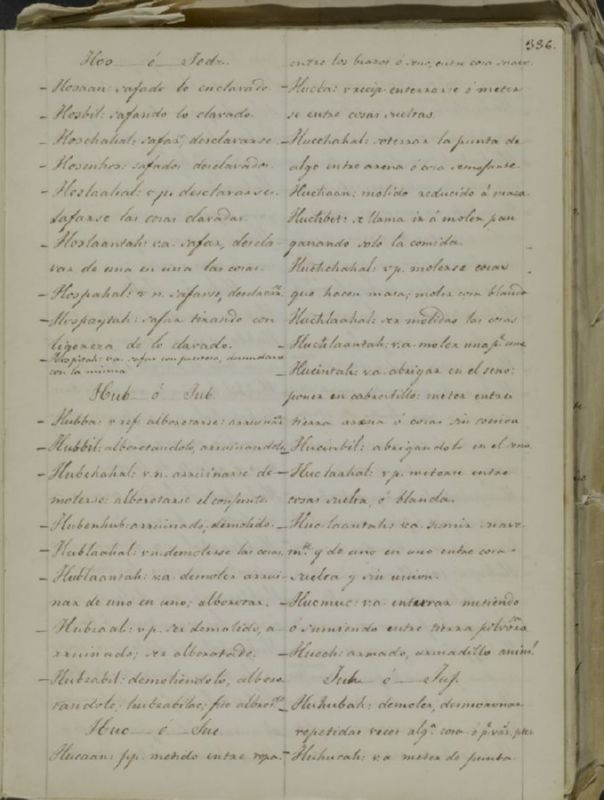 336.
Hos ó Jodz.
- Hosaan: safado lo enclavado.
- Hosbil: safando lo clavado.
- Hoschahal: safar, desclavarse.
- Hosenhos: safados desclavados.
- Hoslaahal: v.p. desclavarse.
safarse las cosas clavadas.
- Hoslaantah: v.a. safar, descla-
var de una en una las cosas.
- Hospahal: v.n. safarse,
- Hospaytah: safar tirando con
ligereza de lo clavado.
- Hospitah: v.a. safar con presteza,
con la misma
Hub ó Jub.
- Hubba: v. ref. alborotarse:
- Hubbil: alborotandolo, arruinandolo
- Hubchahal: v.n. arruinarse de-
molerse: alborotarse el conjunto.
- Hubenhub: arruinado, demolido.
- Hublaahal: v.n. demolerse las cosas.
- Hublaantah: v.a. demoler arrui-
nar de uno en uno; alborotar.
- Hubzaal: v.p. ser demolido, a-
rruinado; ser alborotado.
- Hubzabil: demoliendolo, alboro-
tandolo; hubzabilac; fue
Huc ó Juc
Hucaan: p.p. metido entre ropa.
entre los brazos ó seno, entre cosa suave.
- Hucba: v. recip. enterrarse ó meter
se entre cosas sueltas.
- Hucchahal: soterrar la punta de
algo entre arena ó cosa semejante.
Huchaan: molido reducido á masa.
Huchbil: se llama ir á moler pan
ganando solo la comida.
Huchchahal: v.p. molerse cosas
que hacen masa; moler cosa blanda
Huchlaahal: ser molidas las cosas
Huchlaantah: v.a. moler una pr. una
Hucintah: v.a. abrigar en el seno:
poner en cabrestillo: meter entre
tierra arena ó cosas sin cohesion
Hucinbil: abrigandolo en el seno.
- Huclaahal: v.p. meterse entre
cosas suelta, ó blanda.
- Huclaantah: v.a. sumir suave
mte. y de uno en uno entre cosa
suelta y sin union.
- Hucmuc: v.a. enterrar metiendo
ó sumiendo entre tierra
- Huech: armado, armadillo animl.
Juh ó Juj.
- Huhubah: demoler, desmoronar
repetidas veces algª cosa
- Huhucah: v.a. meter de punta